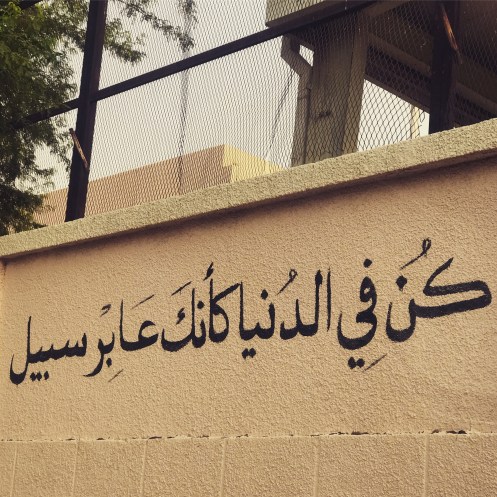 كُنْ فِي الدُنيا كأنكَ عَابِرْ سبيل